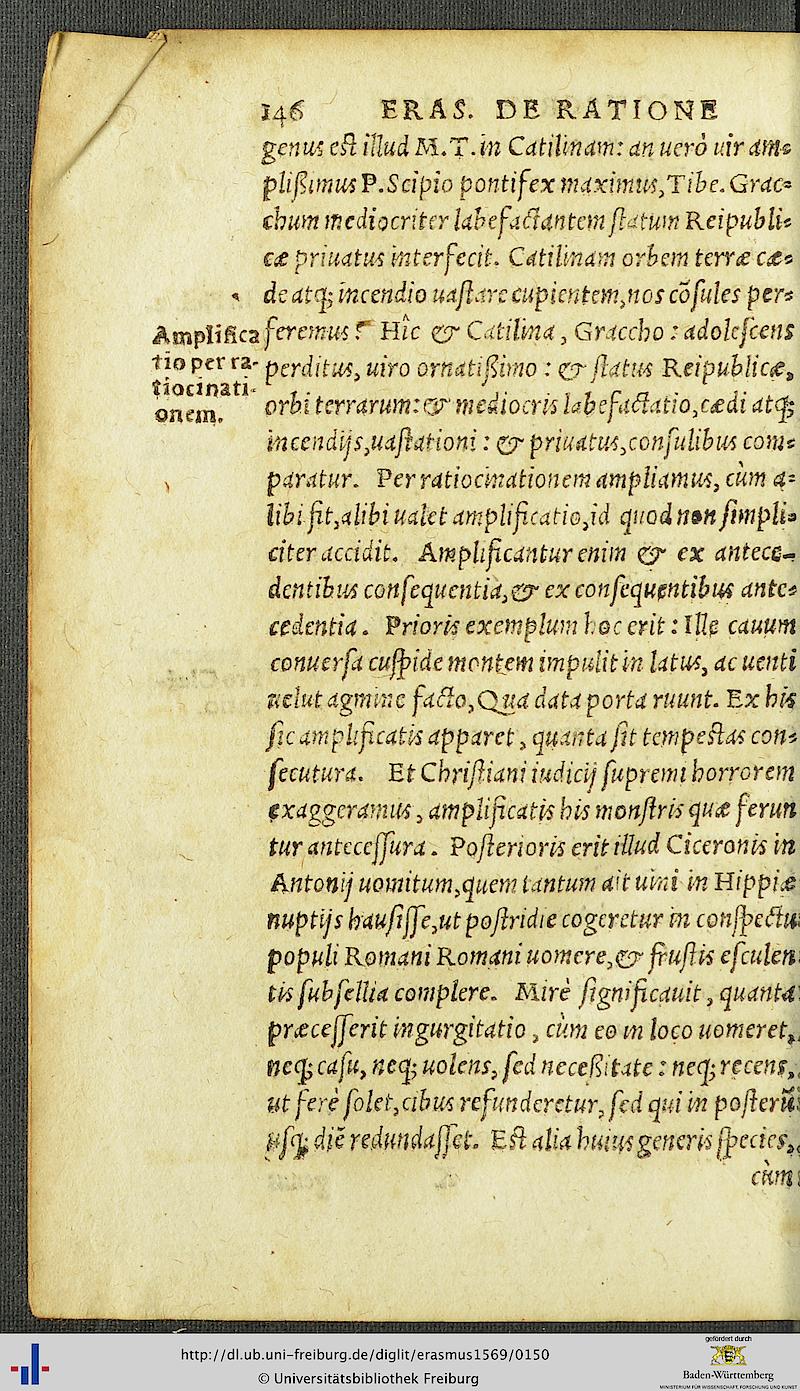 146 ERAS. DE RATIONE
genus est illud M.T. in Catilinam: an uerò uir am=
plißimus P. Scipio pontifex maximus, Tibe. Grac=
chum mediocriter labefactantem statum Reipubli=
cæ priuatus interfecit. Catilinam orbem terræ cæ=
de atq; incendio uastare cupientem, nos cõsules per=
feremus? Hîc & Catilina, Graccho: adolescens
perditus, uiro ornatißimo: & status Reipublicæ,
orbi terrarum: & mediocris labefactatio, cædi atq;
incendijs, uastationi: & priuatus, consulibus com=
paratur. Per ratiocinationem ampliamus, cùm a=
libi fit, alibi ualet amplificatio, id quod non simpli=
citer accidit. Amplificantur enim & ex antece=
dentibus consequentia, & ex consequentibus ante=
cedentia. Prioris exemplum hoc erit: Ille cauum
conuersa cuspide montem impulit in latus, ac uenti
uelut agmine facto, Qua data porta ruunt. Ex his
sic amplificatis apparet, quanta sit tempestas con=
secutura. Et Christiani iudicij supremi horrorem
exaggeramus, amplificatis his monstris quæ ferun
tur antecessura. Posterioris erit illud Ciceronis in
Antonij uomitum, quem tantum ait uini in Hippiæ
nuptijs hausisse, ut postridie cogeretur in conspectu
populi Romani Romani uomere, & frustis esculen
tis subsellia complere. Mirè significauit, quanta
præcesserit ingurgitatio, cùm eo in loco uomeret,
neq; casu, neq; uolens, sed neceßitate: neq; recens,
ut ferè solet, cibus refunderetur, sed qui in posterũ
usq; diẽ redundasset. Est alia huius generis species,
cùm
Amplifica
tio per ra-
tiocinati-
onem.
http://dl.ub.uni-freiburg.de/diglit/erasmus1569/0150
© Universitätsbibliothek Freiburg
gefördert durch
Baden-Württemberg
MINISTERIUM FÜR WISSENSCHAFT, FORSCHUNG UND KUNST